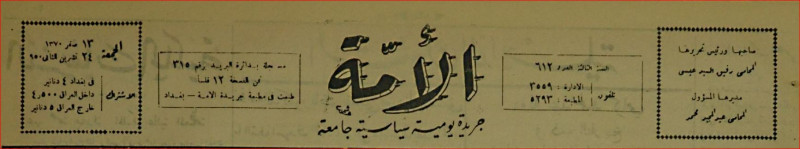 صاحبها ورئيس تحريرها
المحامي رفيق السيد عيسى
مديرها المسؤول
المحامي عبد المجيد محمد
السنة الثالثة العدد ٦١٢
تلفون
الادارة : ٣٥٥٩
المطبعة : ٥٢٩٣
الأمّة
جريدة يومية سياسية جامعة
مسجلة بدائرة البريد برقم ٣١٥
ثمن النسخة ١٢ فلسا
طبعت في مطبعة جريدة الامة – بغداد
الجمعة
١٣ صفر ١٣٧٠
٢٤ تشرين الثاني ٩٥٠
الاشتراك
في بغداد ٤ دنانير
داخل العراق ٤,٥٠٠
خارج العراق ٥ دنانير